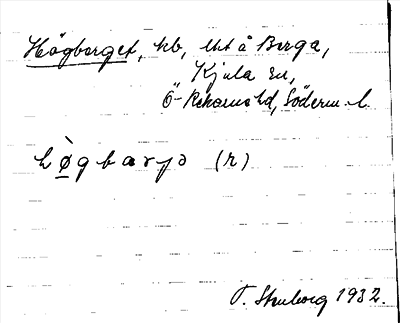 Högberget, kb, lht å Berga,
Kjula sn,
Ö-Rekarne hd, Söderm. l.
hø̀gbarjə (r)
T. Streborg 1932.